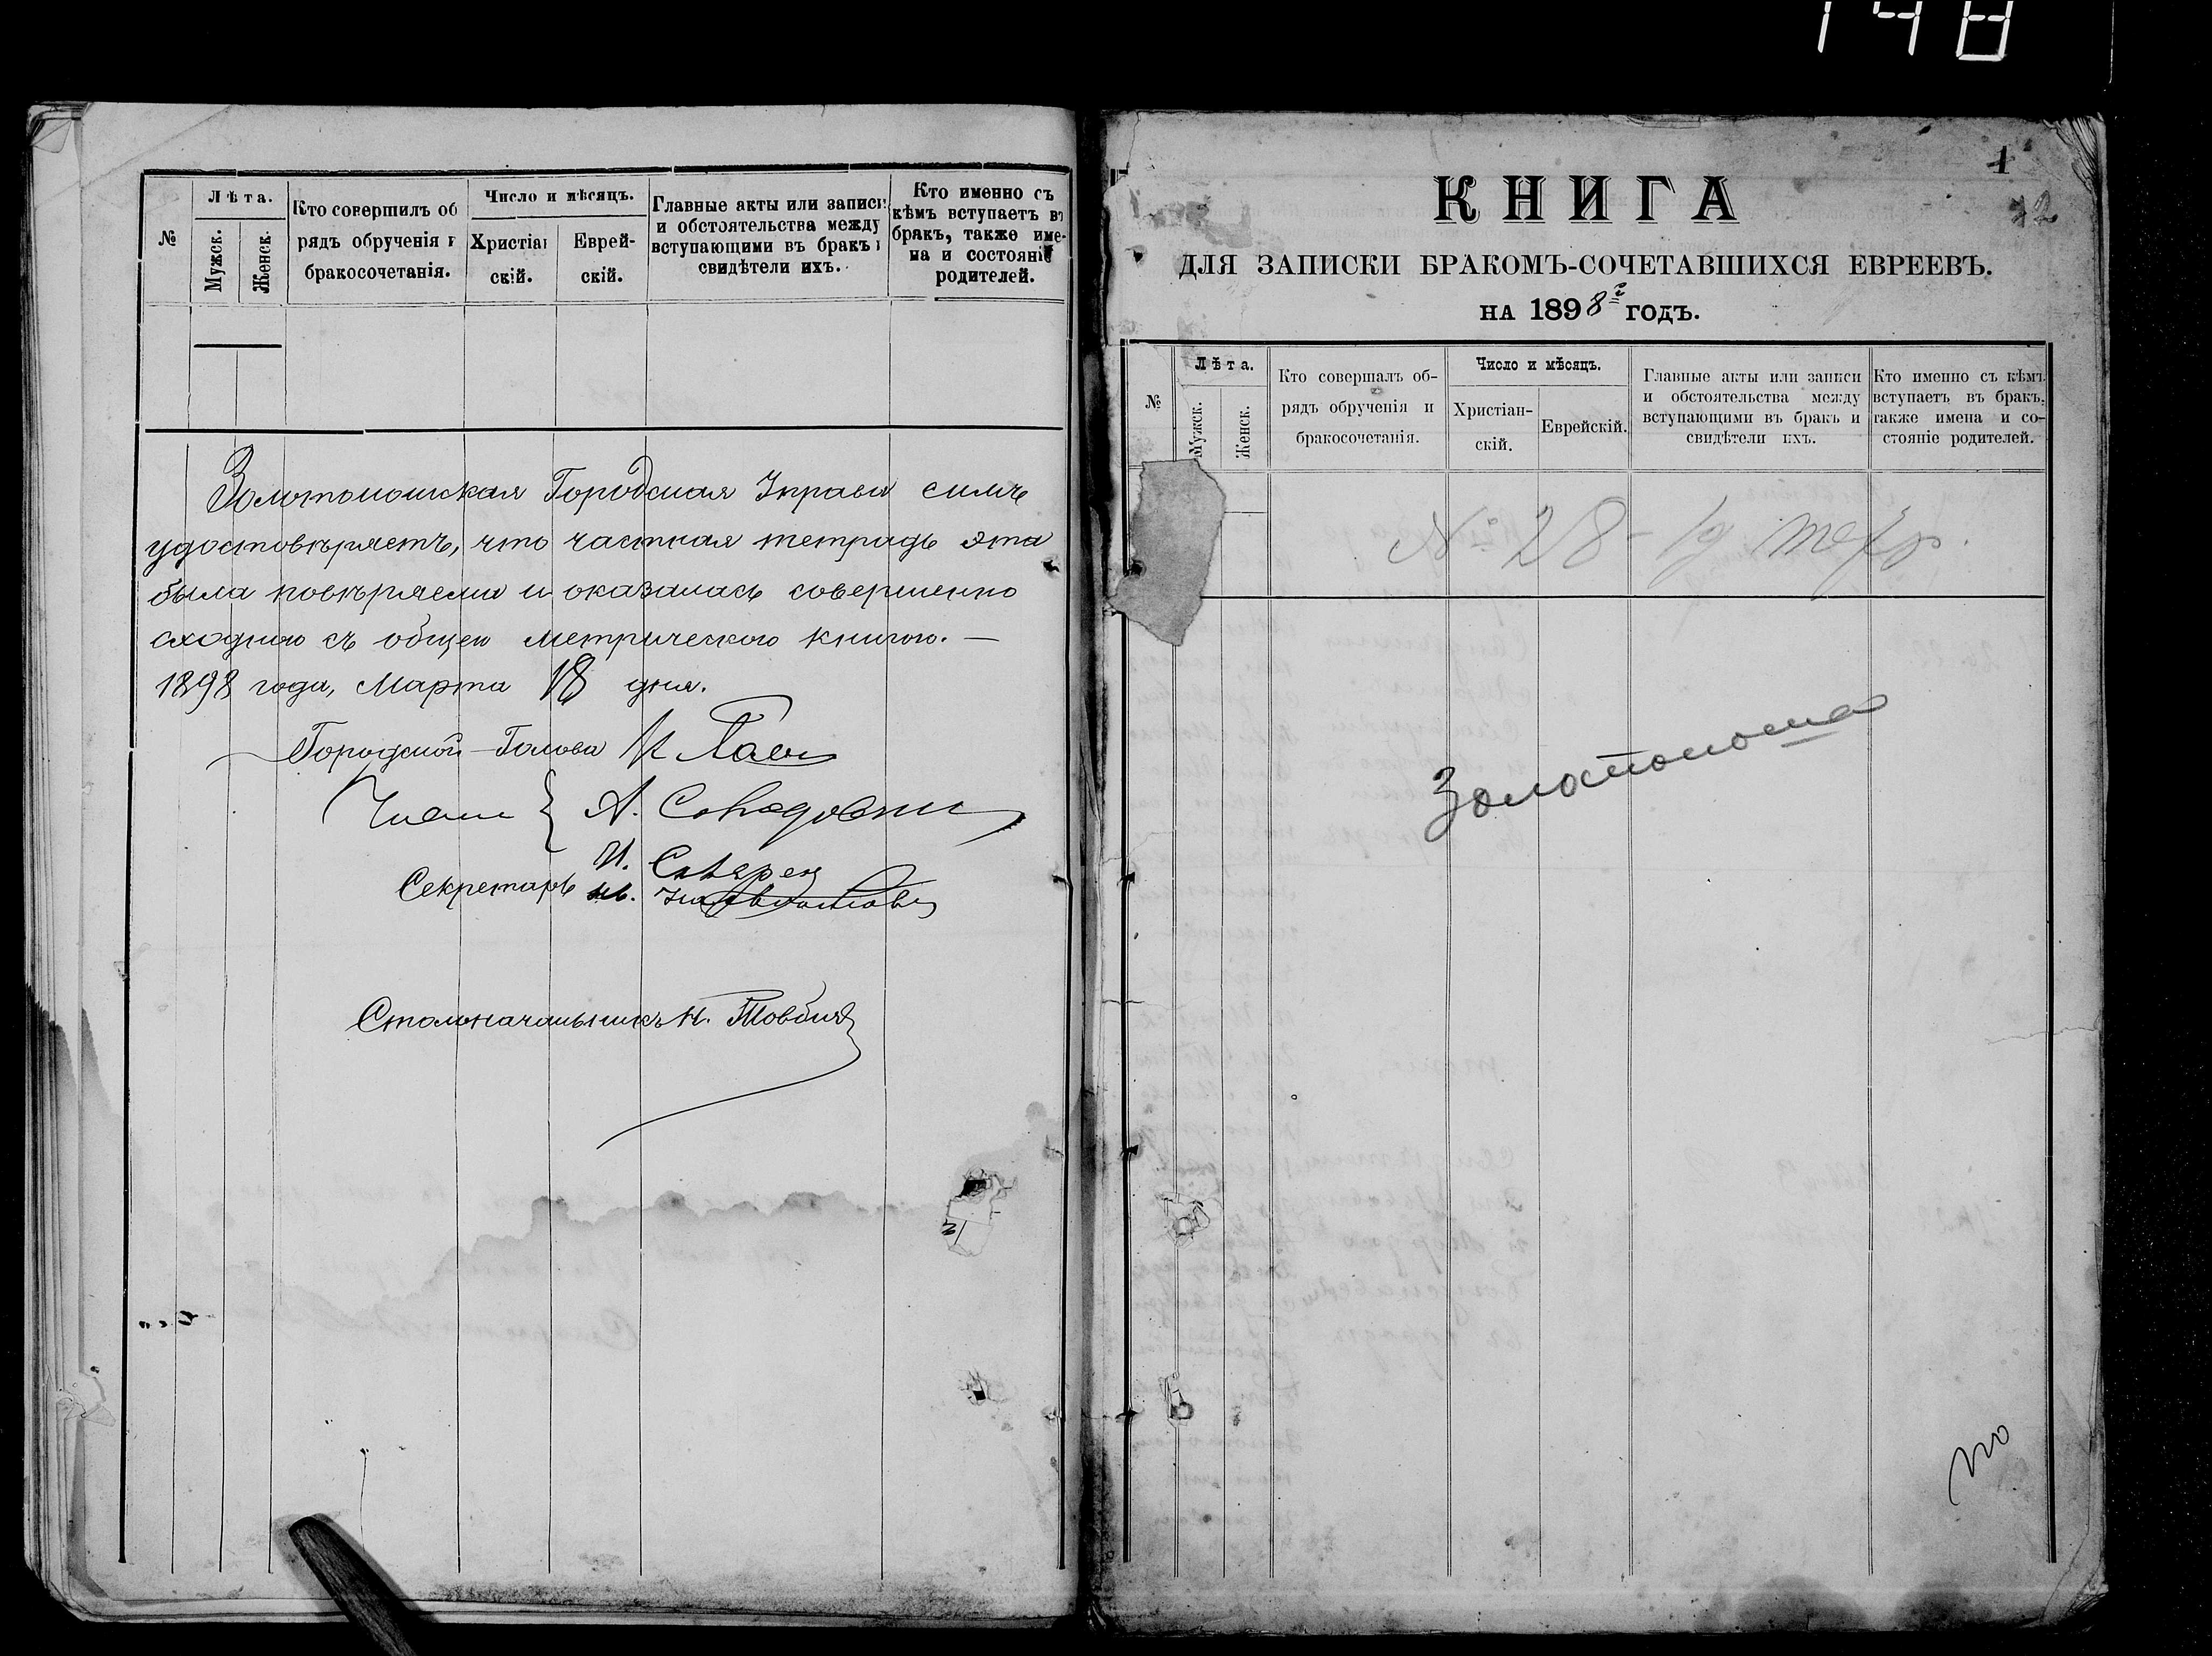 148
№
Лѣта.
Мужск.
Женск.
Кто совершилъ об
рядъ обрученія и
бракосочетанія.
Число и мѣсяцъ.
Христіан
скій.
Еврей-
скій.
Главные акты или записи
и обстоятельства между
вступающими въ бракъ и
свидѣтели ихъ.
Кто именно съ
кѣмъ вступаетъ въ
бракъ, также име-
на и состояніе
родителей.
Золотоношская Городская Управа симъ
удостовѣряетъ, что частная тетрадь эта
была повѣряема и оказалась совершенно
сходною съ общею метрическою книгою. —
1898 года, Марта 18 дня.
Городской Голова
Члены { А.
И.
Секретарь
Столоначальникъ Н. Товбичъ
1
КНИГА
ДЛЯ ЗАПИСКИ БРАКОМЪ-СОЧЕТАВШИХСЯ ЕВРЕЕВЪ.
НА 1898 г ГОДЪ.
№
Лѣта.
Мужск.
Женск.
Кто совершалъ об-
рядъ обрученія и
бракосочетанія.
Число и мѣсяцъ.
Христіан-
скій.
Еврейскій.
Главные акты или записи
и обстоятельства между
вступающими въ бракъ и
свидѣтели ихъ.
Кто именно съ кѣмъ
вступаетъ въ бракъ,
также имена и со-
стояніе родителей.
№ 28-19
Золотоноша